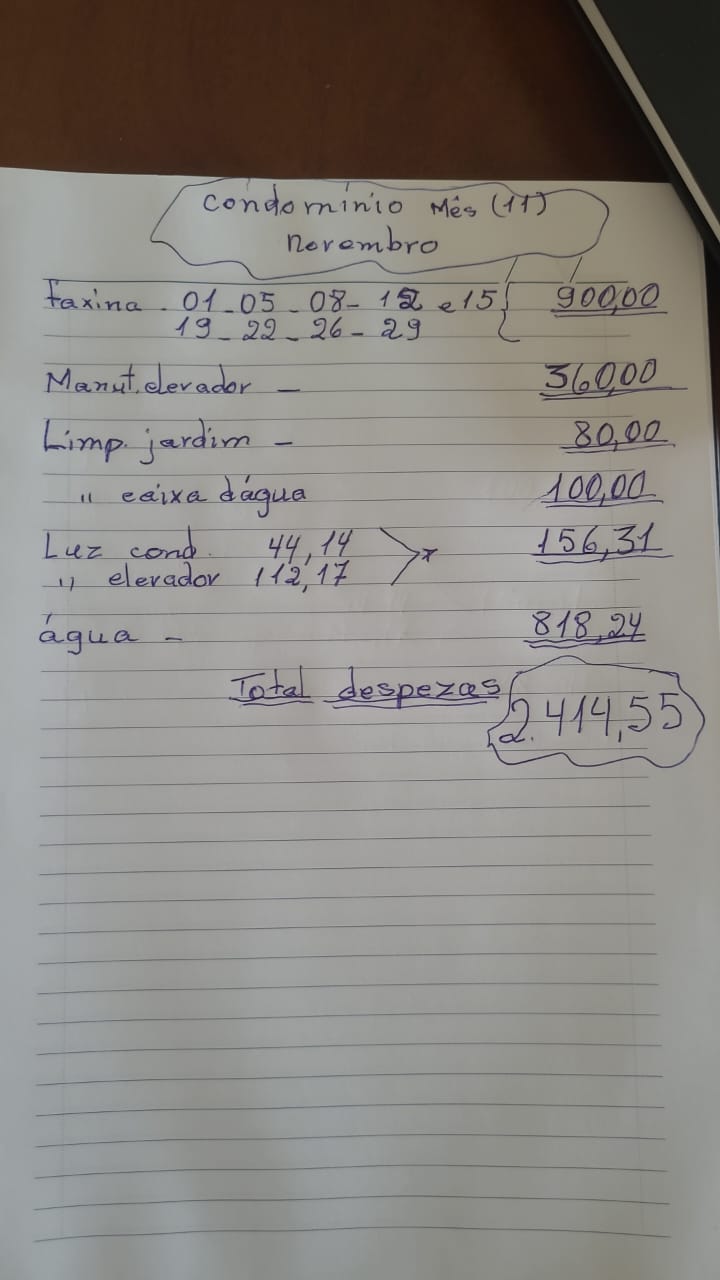 Condomínio Mês (11)
novembro
faxina - 01 - 05 - 08 - 12 e 15 { 900,00
19 - 22 - 26 - 29
Manut. elevador - 360,00
Limp. jardim - 80,00
" caixa dágua 100,00
Luz cond. 44,14 156,31
" elevador 112,17
água - 818,24
Total despezas 2.414,55